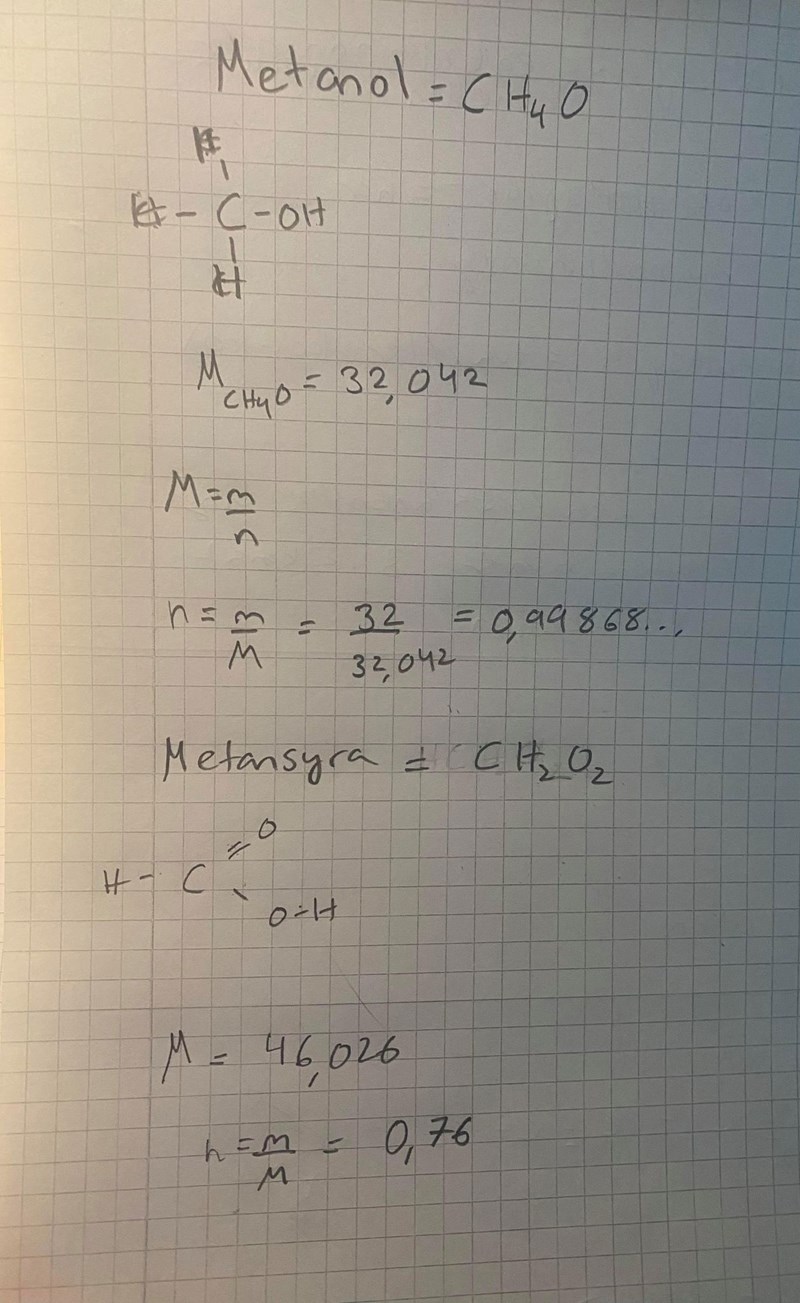 Metanol = CH₄O
H
H - C - OH
H
M CH₄O = 32,042
M = m/n
n = m/M = 32/32,042 = 0,99868...
Metansyra = CH₂O₂
O
H - C
O-H
M = 46,026
n = m/M = 0,76